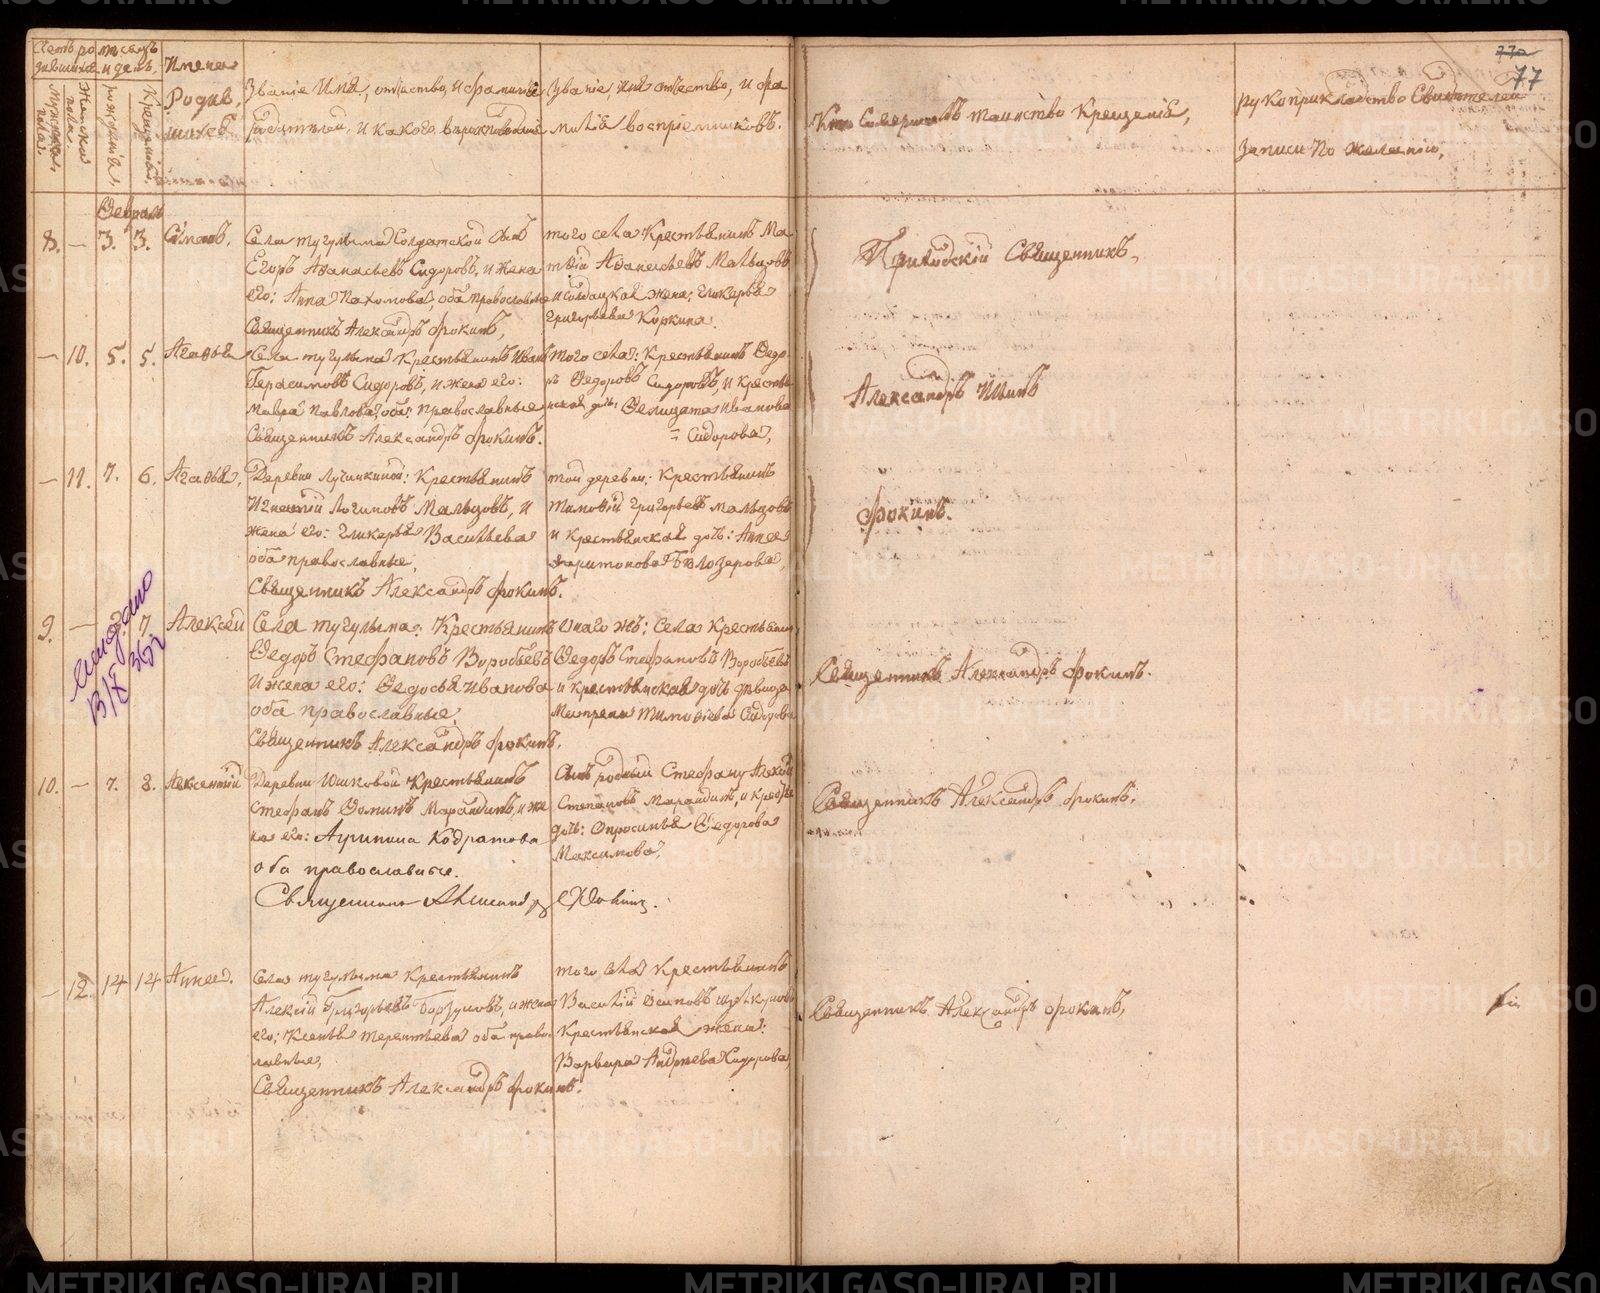 METRIKI.GASO-URAL.RU
77
Имена
Родив
шихся
Званіе Имя, отчество, и фамилія
родителей, и какого вѣроисповѣданія
Званіе, имя отчество, и фа
милія воспріемниковъ.
Кто Совершалъ таинство Крещенія,
рукоприкладство Свидѣтелей
записи по желанію,
Февраль
8. — 3. 3. Симонъ.
Села тугулыма Солдатской сынъ
Егоръ Афанасьевъ Сидоровъ, и жена
его: Анна Пахомова, оба православные
Священникъ Александръ Фокинъ,
того села Крестьянинъ Ма
твѣй Афанасьевъ Мальцовъ
и солдацкая жена: Гликерья
Григорьева Коркина.
Приходскій Священникъ,
— 10. 5. 5. Агафья
Села тугулыма Крестьянинъ Иванъ
Герасимовъ Сидоровъ, и жена его:
Мавра Павлова, оба православные
Священникъ Александръ Фокинъ.
того села: Крестьянинъ Федо
ръ Федоровъ Сидоровъ, и кресть
нская дочь Фелицата Иванова
= Сидорова,
Александръ Ильинъ
— 11. 7. 6. Агафья,
Деревни Лучинкиной: Крестьянинъ
Игнатій Логиновъ Мальцовъ, и
жена его: Гликерья Васильева
оба православные,
Священникъ Александръ Фокинъ.
той деревни: Крестьянинъ
Тимофій Григорьевъ Мальцовъ
и крестьянская дочь: Анна
Харитонова Бѣлозерова,
Фокинъ.
9. — 7 Алексѣй
Села тугулыма: Крестьянинъ
Федоръ Стефановъ Воробьевъ
и жена его: Федосья Иванова
оба православные,
Священникъ Александръ Фокинъ.
онаго жъ: Села Крестьянинъ
Федоръ Стефановъ Воробьевъ
и крестьянская дочь дѣвица
Матрена Тимофіева Сидорова
Священникъ Александръ Фокинъ.
выдано
10. — 7. 8. Авксентій
Деревни Юшковой Крестьянинъ
Стефанъ Фоминъ Марандинъ, и же
на его: Агрипина Кодратова
оба православные.
Священникъ Александръ Фокинъ.
Сынъ родный Стефану
Степановъ Марандинъ, и
дочь: Опросинья Федорова
Максимова,
Священникъ Александръ Фокинъ.
— 12. 14 14 Анна.
Села тугулыма Крестьянинъ
Алексій Григорьевъ Борзуновъ, и жена
его: Ксенья Терентьева оба право
славные,
Священникъ Александръ Фокинъ.
того села Крестьянинъ
Василій Осиповъ
Крестьянская жена:
Варвара Андреева Сидорова,
Священникъ Александръ Фокинъ,